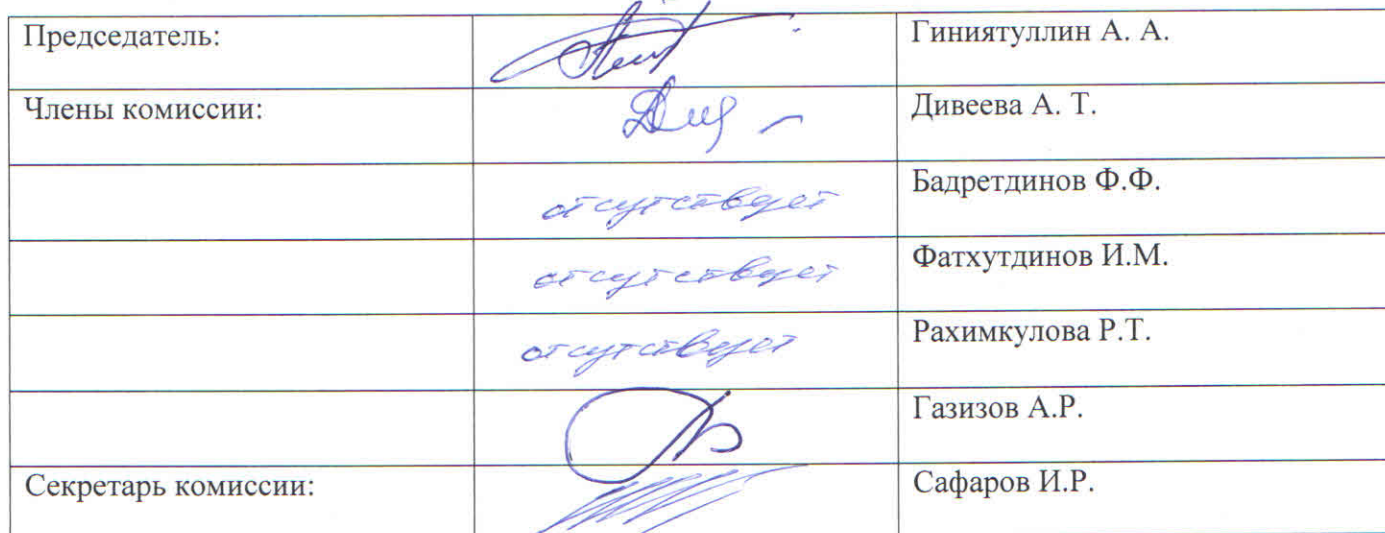 Председатель: Гиниятуллин А. А.
Члены комиссии: Дивеева А. Т.
отсутствует Бадретдинов Ф.Ф.
отсутствует Фатхутдинов И.М.
отсутствует Рахимкулова Р.Т.
Газизов А.Р.
Секретарь комиссии: Сафаров И.Р.